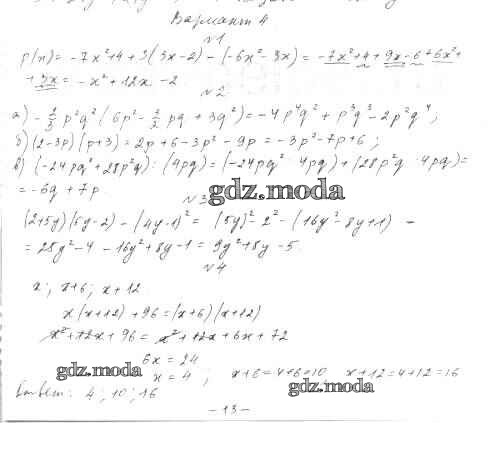 Вариант 4
№1
p(x) = -7x²+4+3(3x-2) - (-6x²-3x) = -7x²+4+9x-6+6x²+
+3x = -x²+12x-2
№2
а) -2/3 p²q² (6p² - 3/2 pq + 3q²) = -4p⁴q² + p³q³ - 2p²q⁴;
б) (2-3p)(p+3) = 2p+6-3p²-9p = -3p²-7p+6;
в) (-24pq²+28p²q) : (4pq) = (-24pq² 4pq) + (28p²q 4pq) =
= -6q + 7p.
gdz.moda
№3
(2+5y)(5y-2) - (4y-1)² = (5y)² - 2² - (16y²-8y+1) =
= 25y²-4-16y²+8y-1 = 9y²+8y-5.
№4
x; x+6; x+12
x(x+12)+96=(x+6)(x+12)
x²+12x+96 = x²+12x+6x+72
6x = 24
gdz.moda
x = 4; x+6=4+6=10, x+12=4+12=16
gdz.moda
Ответ: 4; 10; 16
-13-